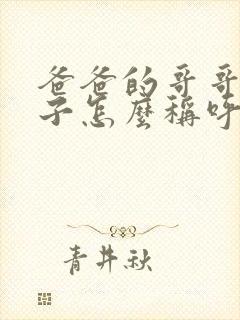 爸爸的哥哥
子怎麼稱呼
青井秋